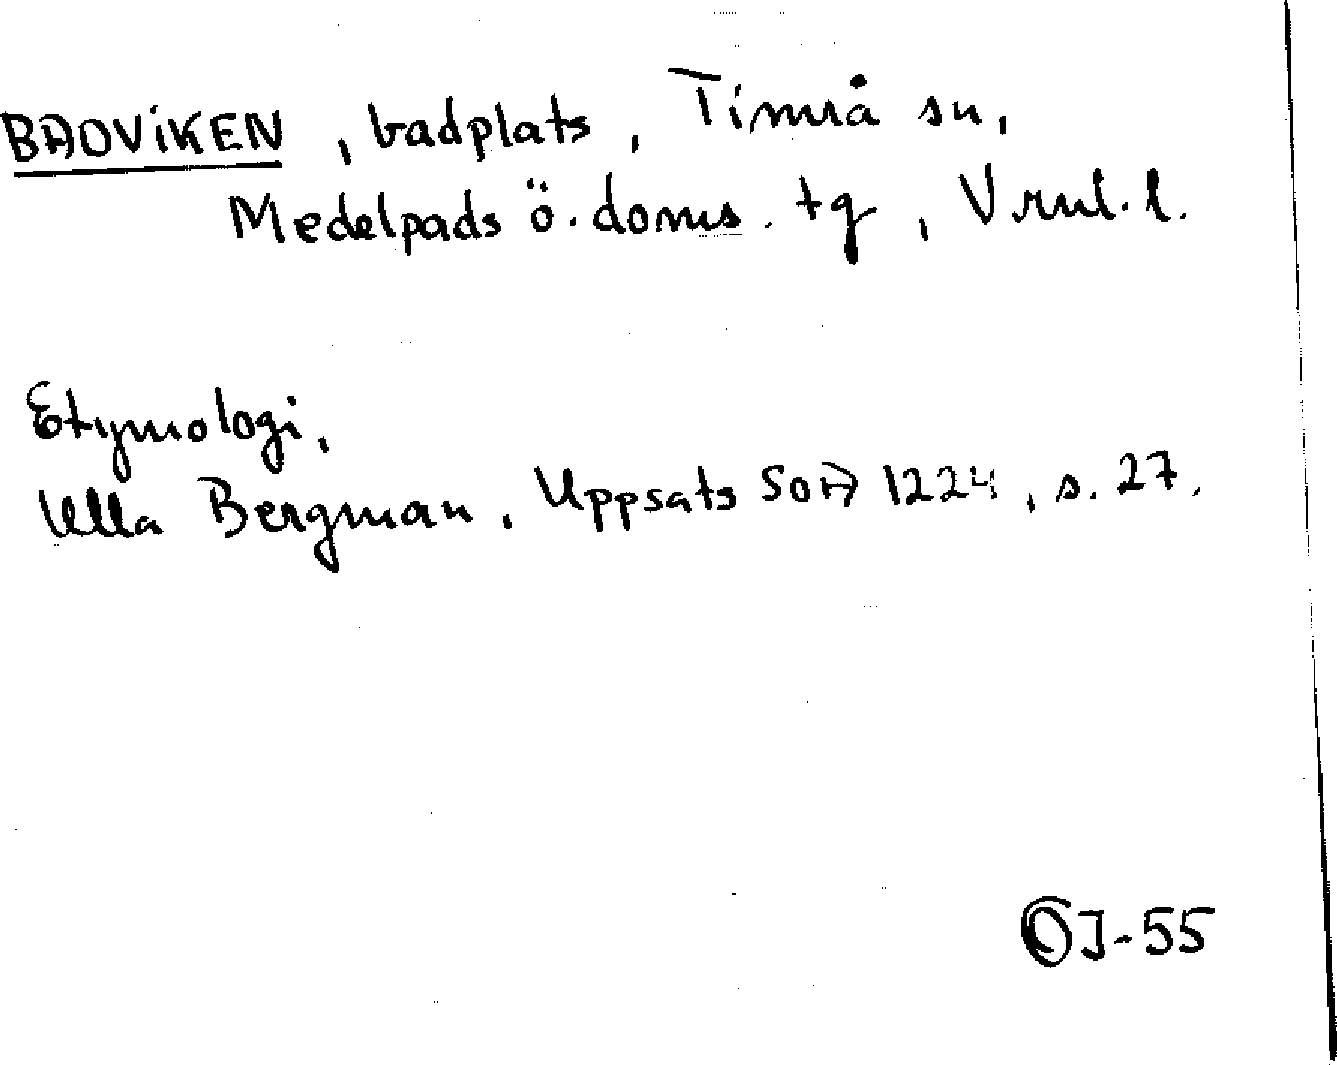 BADVIKEN, badplats, Timrå sn,
Medelpads ö. doms. tg, Vrnl. l.
Etymologi,
Ulla Bergman, Uppsats SOA 1224, s. 27.
OJ-55